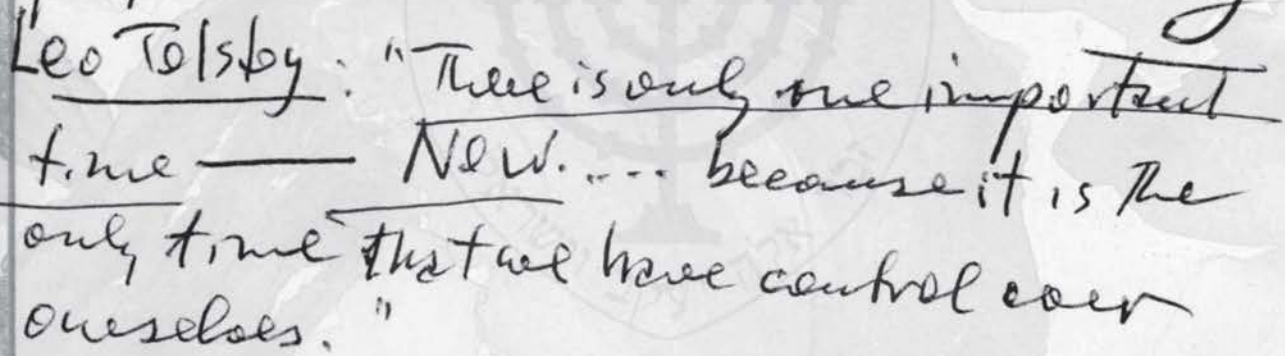 Leo Tolstoy: "There is only one important
time — Now..... because it is the
only time that we have control over
ourselves."